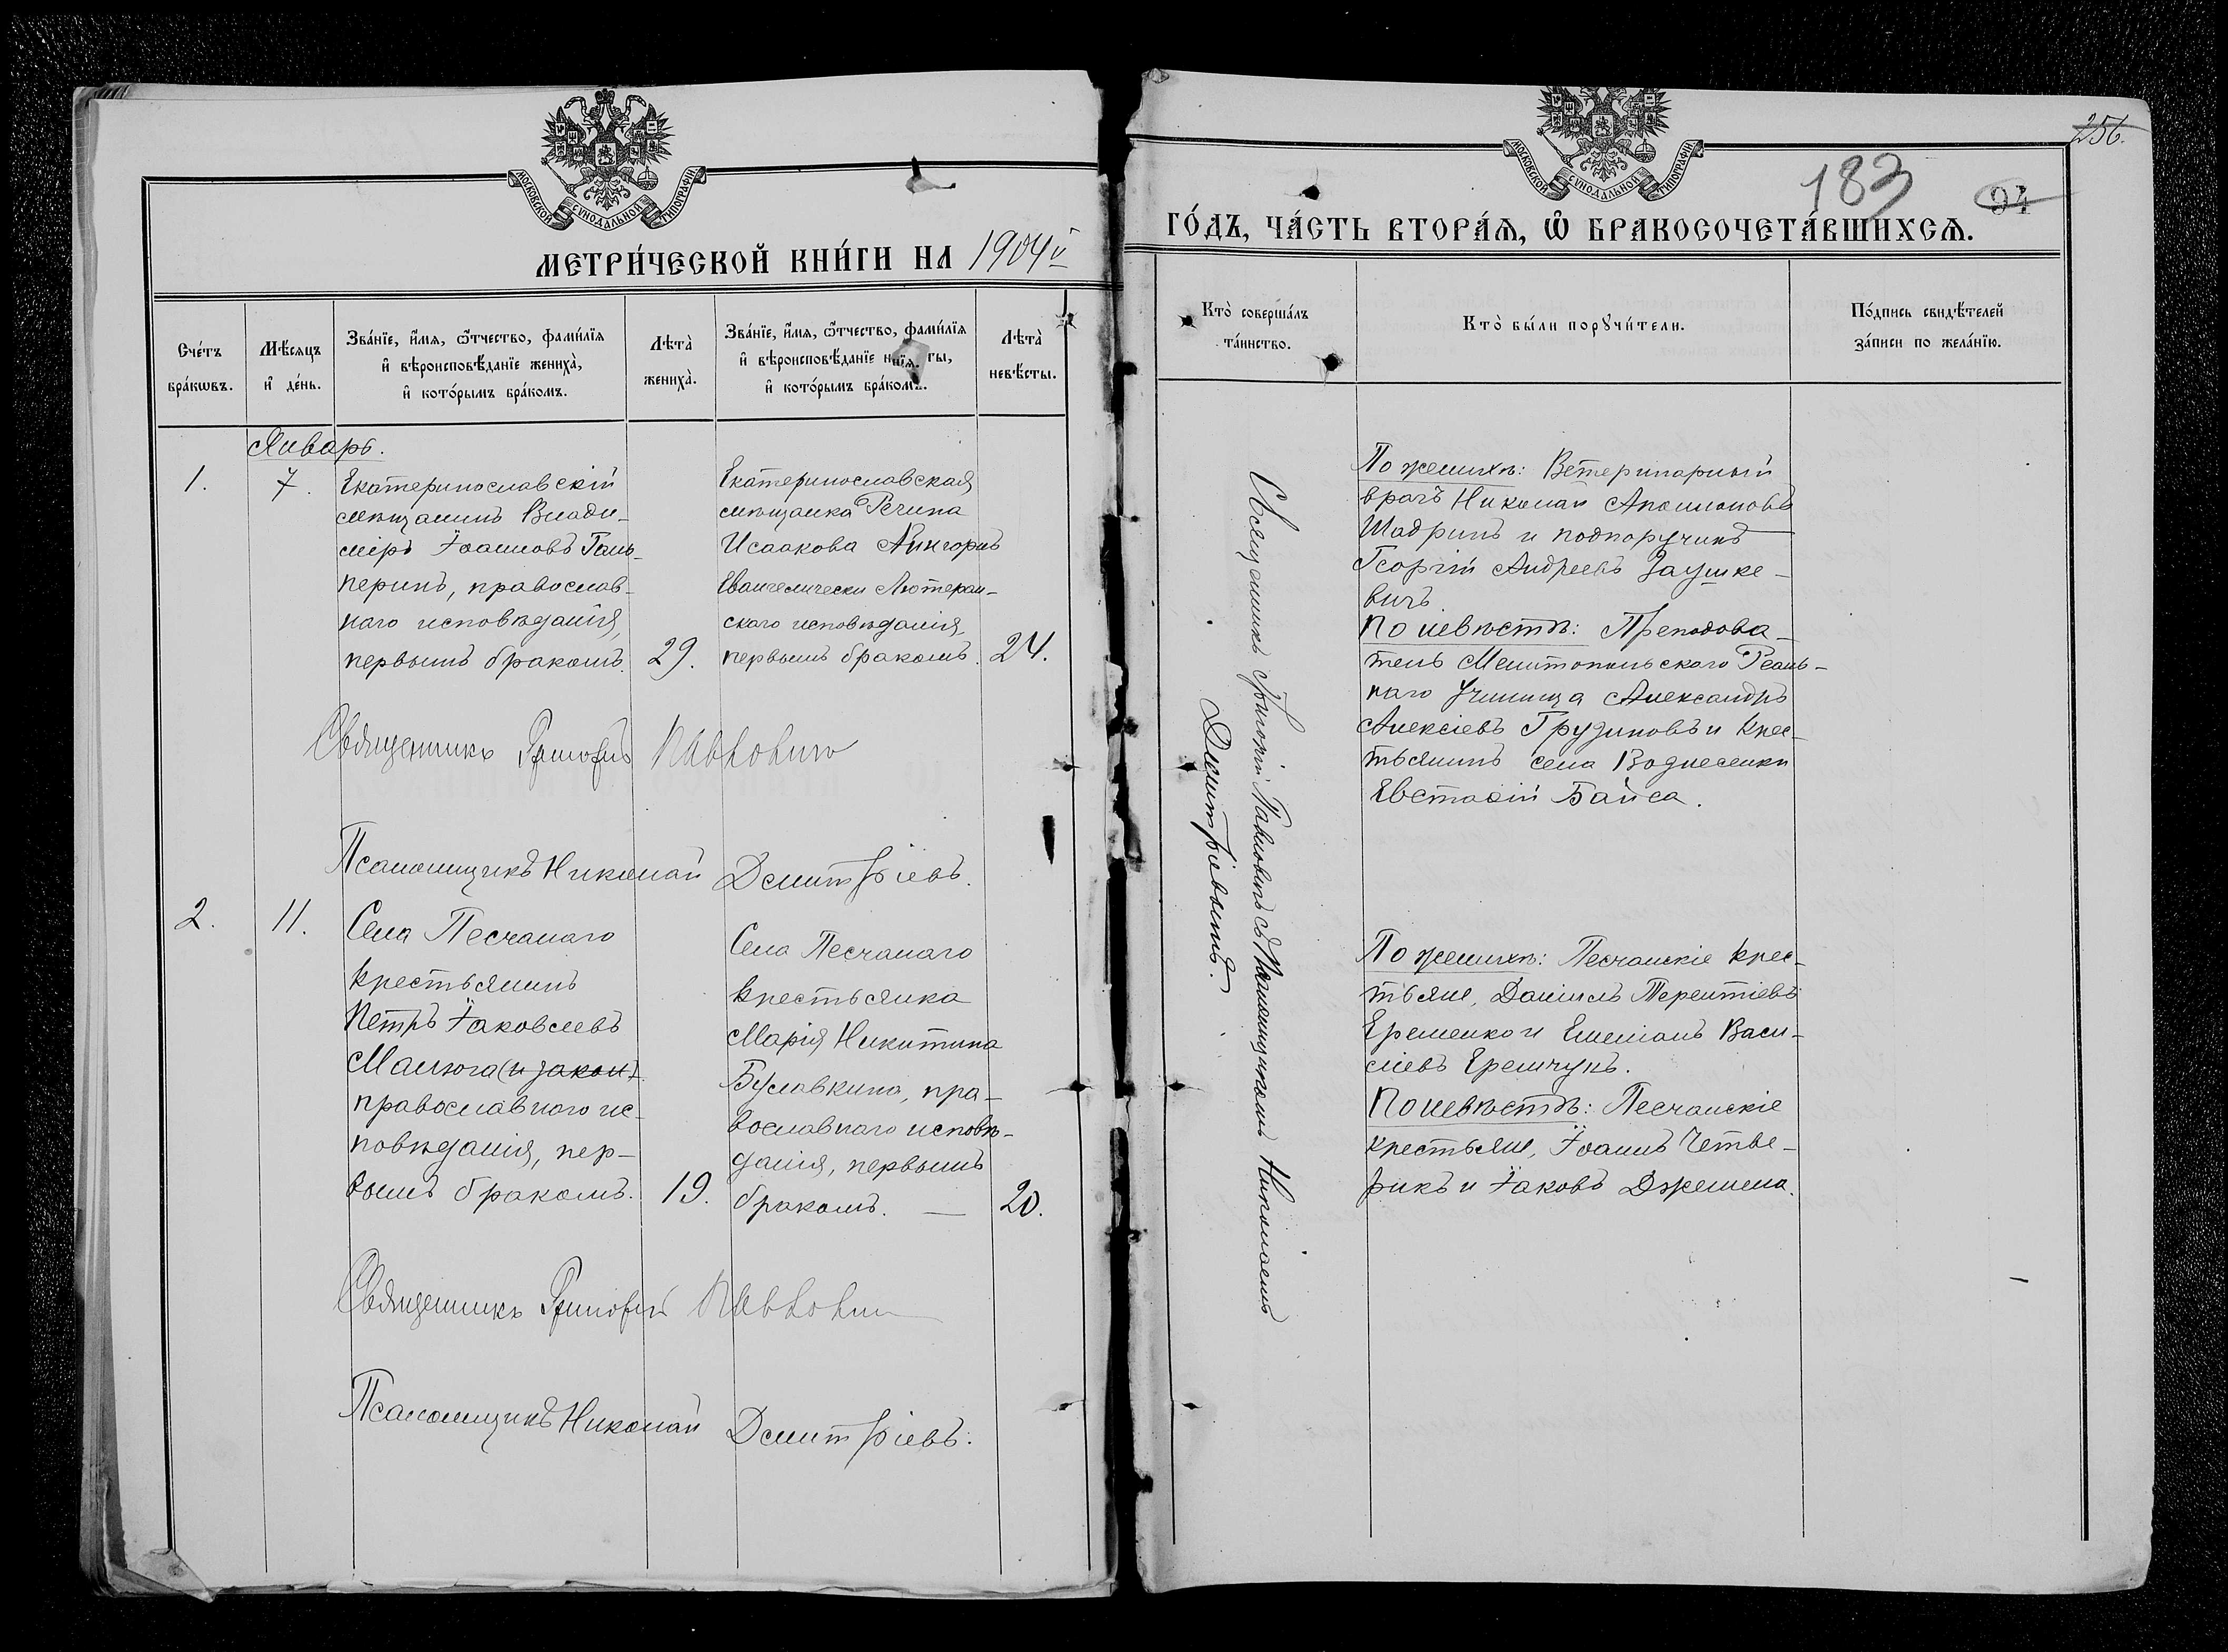 МОСКОВСКОЙ СѴНОДАЛЬНОЙ ТИПОГРАФІИ
МЕТРИ́ЧЕСКОЙ КНИ́ГИ НА 1904й
Сче́тъ бра́кѡвъ.
Мѣ́сяцъ и҆ де́нь.
Зва́нїе, и҆́мя, ѻ҆́тчество, фами́лїя
и҆ вѣроисповѣ́данїе жениха̀,
и҆ кото́рымъ бра́комъ.
Лѣта̀ жениха̀.
Зва́нїе, и҆́мя, ѻ҆́тчество, фами́лїя
и҆ вѣроисповѣ́данїе невѣ́сты,
и҆ кото́рымъ бра́комъ.
Лѣта̀ невѣ́сты.
Январь.
1.
7.
Екатеринославскій
мѣщанинъ Влади-
міръ Іоанновъ Галь-
перинъ, православ-
наго исповѣданія,
первымъ бракомъ.
29.
Екатеринославская
мѣщанка Регина
Исаакова
Евангелически Лютеран-
скаго исповѣданія,
первымъ бракомъ.
24.
Священникъ Григорій Павловичъ
Псаломщикъ Николай Дмитріевъ.
2.
11.
Села Песчанаго
крестьянинъ
Петръ Іаковлевъ
Малюга (и закон)
православнаго ис-
повѣданія, пер-
вымъ бракомъ.
19.
Села Песчанаго
крестьянка
Марія Никитина
Булавкина, пра-
вославнаго исповѣ-
данія, первымъ
бракомъ. —
20.
Священникъ Григорій Павлович
Псаломщикъ Николай Дмитріевъ.
256.
МОСКОВСКОЙ СѴНОДАЛЬНОЙ ТИПОГРАФІИ
183
94
ГО́ДЪ, ЧА́СТЬ ВТОРА́Я, Ѡ҆ БРАКОСОЧЕТА́ВШИХСЯ.
Кто̀ соверша́лъ
та́инство.
Кто̀ бы́ли порꙋчи́тели.
По́дпись свидѣ́телей
за́писи по жела́нїю.
Священникъ Григорій Павловичъ съ Псаломщикомъ Николаемъ
Дмитріевымъ.
По женихѣ: Ветеринарный
врачъ Николай Аполлоновъ
Шадринъ и подпоручикъ
Георгій Андреевъ Заушке-
вичъ.
По невѣстѣ: Преподова-
тель Мелитопольскаго Реаль-
наго Училища Александръ
Алексіевъ Грузиновъ и крес-
тьянинъ села Вознесенки
Евстафій Байса.
По женихѣ: Песчанскіе крес-
тьяне, Даніилъ Терентіевъ
Еременко и Емеліанъ Васи-
ліевъ Еремчукъ.
По невѣстѣ: Песчанскіе
крестьяне, Іоаннъ Четве-
рикъ и Іаковъ Джемела.